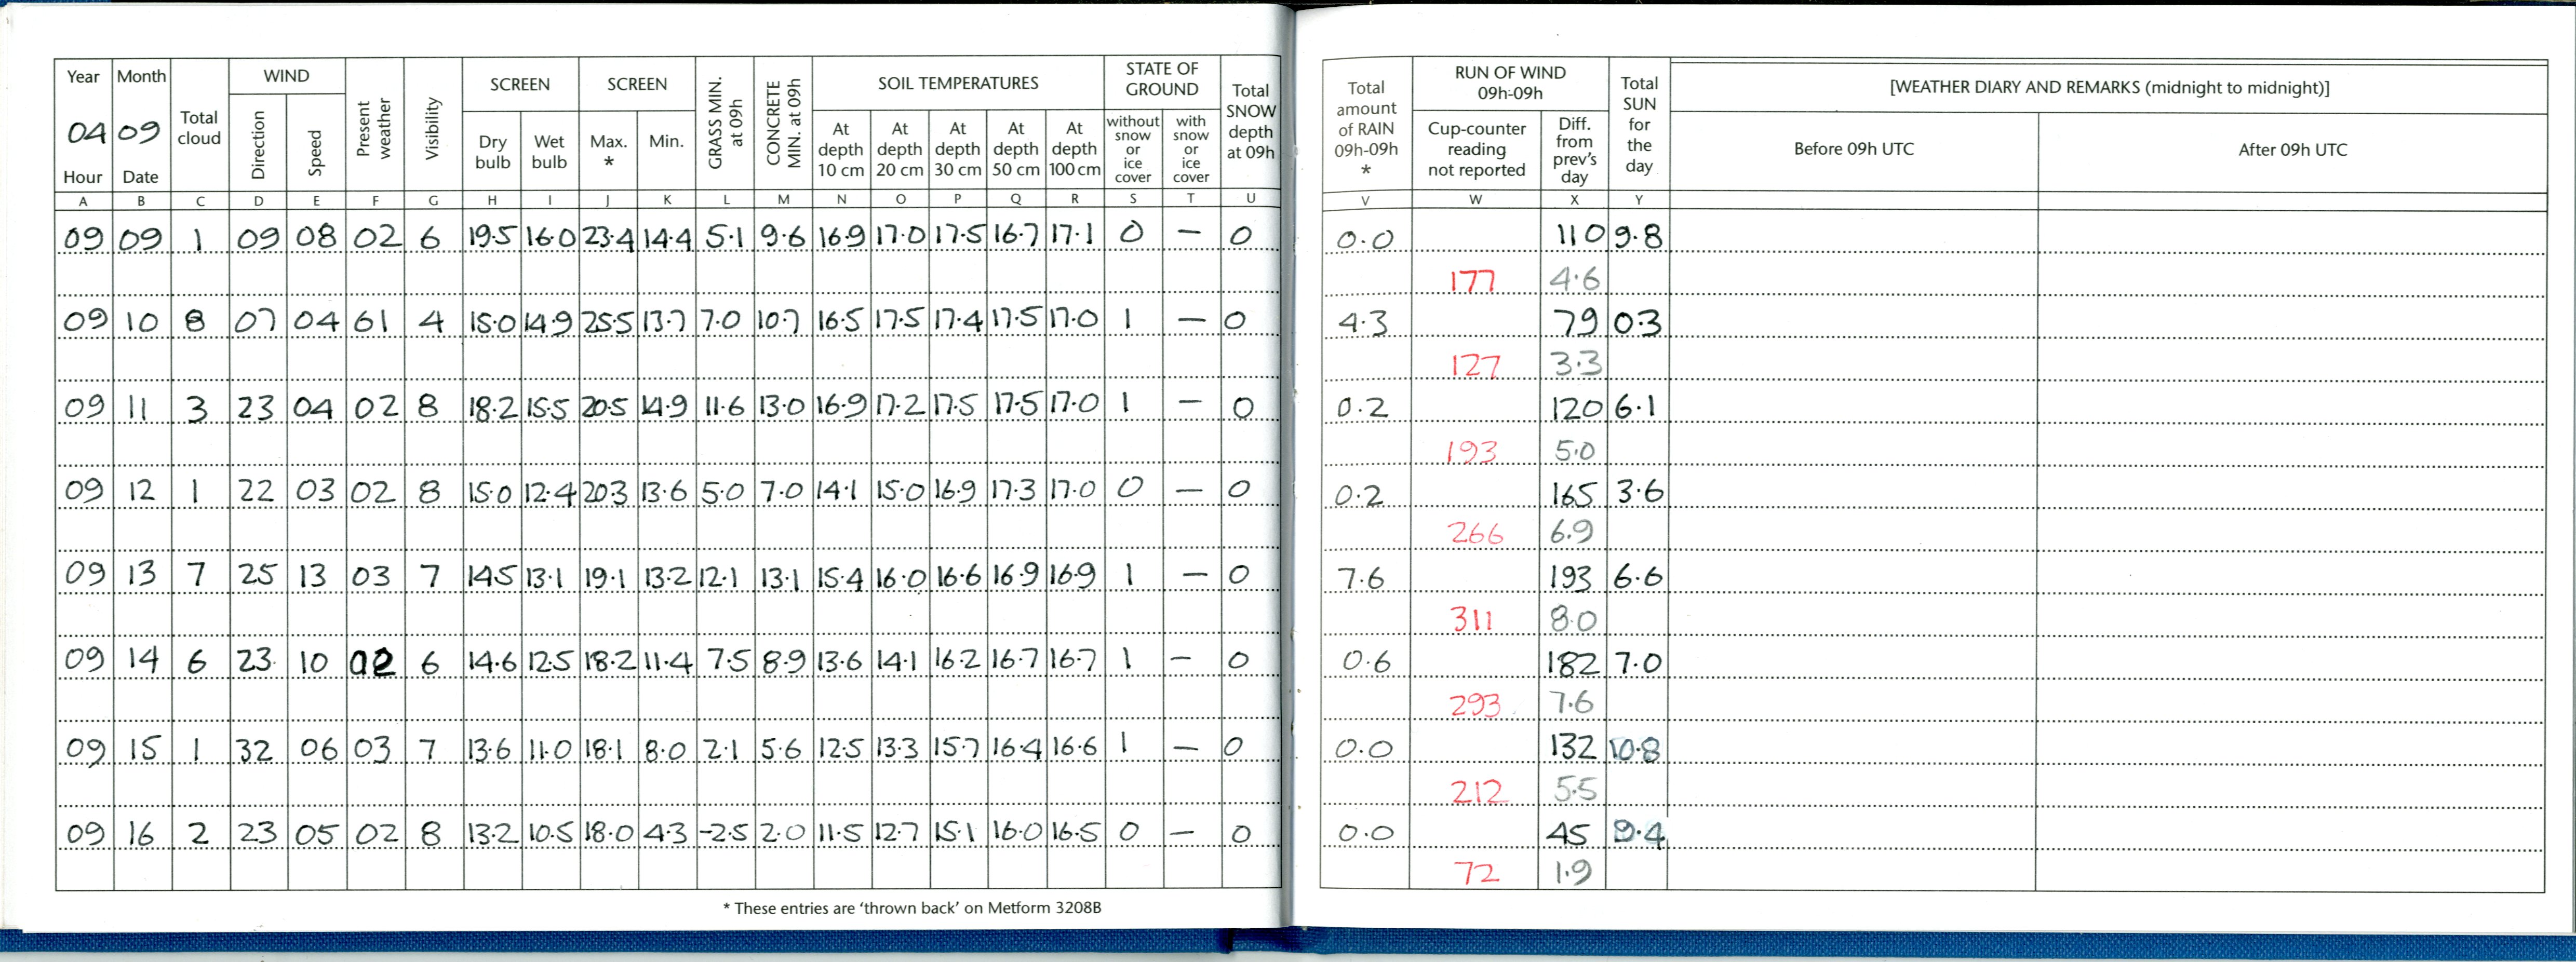 Year Month Total cloud WIND Present weather Visibility SCREEN SCREEN GRASS MIN. at 09h CONCRETE MIN. at 09h SOIL TEMPERATURES STATE OF GROUND Total SNOW depth at 09h
04 09 Direction Speed Dry bulb Wet bulb Max. * Min. At depth 10 cm At depth 20 cm At depth 30 cm At depth 50 cm At depth 100 cm without snow or ice cover with snow or ice cover
Hour Date
A B C D E F G H I J K L M N O P Q R S T U
09 09 1 09 08 02 6 19.5 16.0 23.4 14.4 5.1 9.6 16.9 17.0 17.5 16.7 17.1 0 — 0
09 10 8 07 04 61 4 15.0 14.9 25.5 13.7 7.0 10.7 16.5 17.5 17.4 17.5 17.0 1 — 0
09 11 3 23 04 02 8 18.2 15.5 20.5 14.9 11.6 13.0 16.9 17.2 17.5 17.5 17.0 1 — 0
09 12 1 22 03 02 8 15.0 12.4 20.3 13.6 5.0 7.0 14.1 15.0 16.9 17.3 17.0 0 — 0
09 13 7 25 13 03 7 14.5 13.1 19.1 13.2 12.1 13.1 15.4 16.0 16.6 16.9 16.9 1 — 0
09 14 6 23 10 02 6 14.6 12.5 18.2 11.4 7.5 8.9 13.6 14.1 16.2 16.7 16.7 1 — 0
09 15 1 32 06 03 7 13.6 11.0 18.1 8.0 2.1 5.6 12.5 13.3 15.7 16.4 16.6 1 — 0
09 16 2 23 05 02 8 13.2 10.5 18.0 4.3 -2.5 2.0 11.5 12.7 15.1 16.0 16.5 0 — 0
* These entries are ‘thrown back’ on Metform 3208B
Total amount of RAIN 09h-09h * RUN OF WIND 09h-09h Total SUN for the day [WEATHER DIARY AND REMARKS (midnight to midnight)]
Cup-counter reading not reported Diff. from prev's day Before 09h UTC After 09h UTC
V W X Y
0.0 110 9.8
177 4.6
4.3 79 0.3
127 3.3
0.2 120 6.1
193 5.0
0.2 165 3.6
266 6.9
7.6 193 6.6
311 8.0
0.6 182 7.0
293 7.6
0.0 132 10.8
212 5.5
0.0 45 9.4
72 1.9